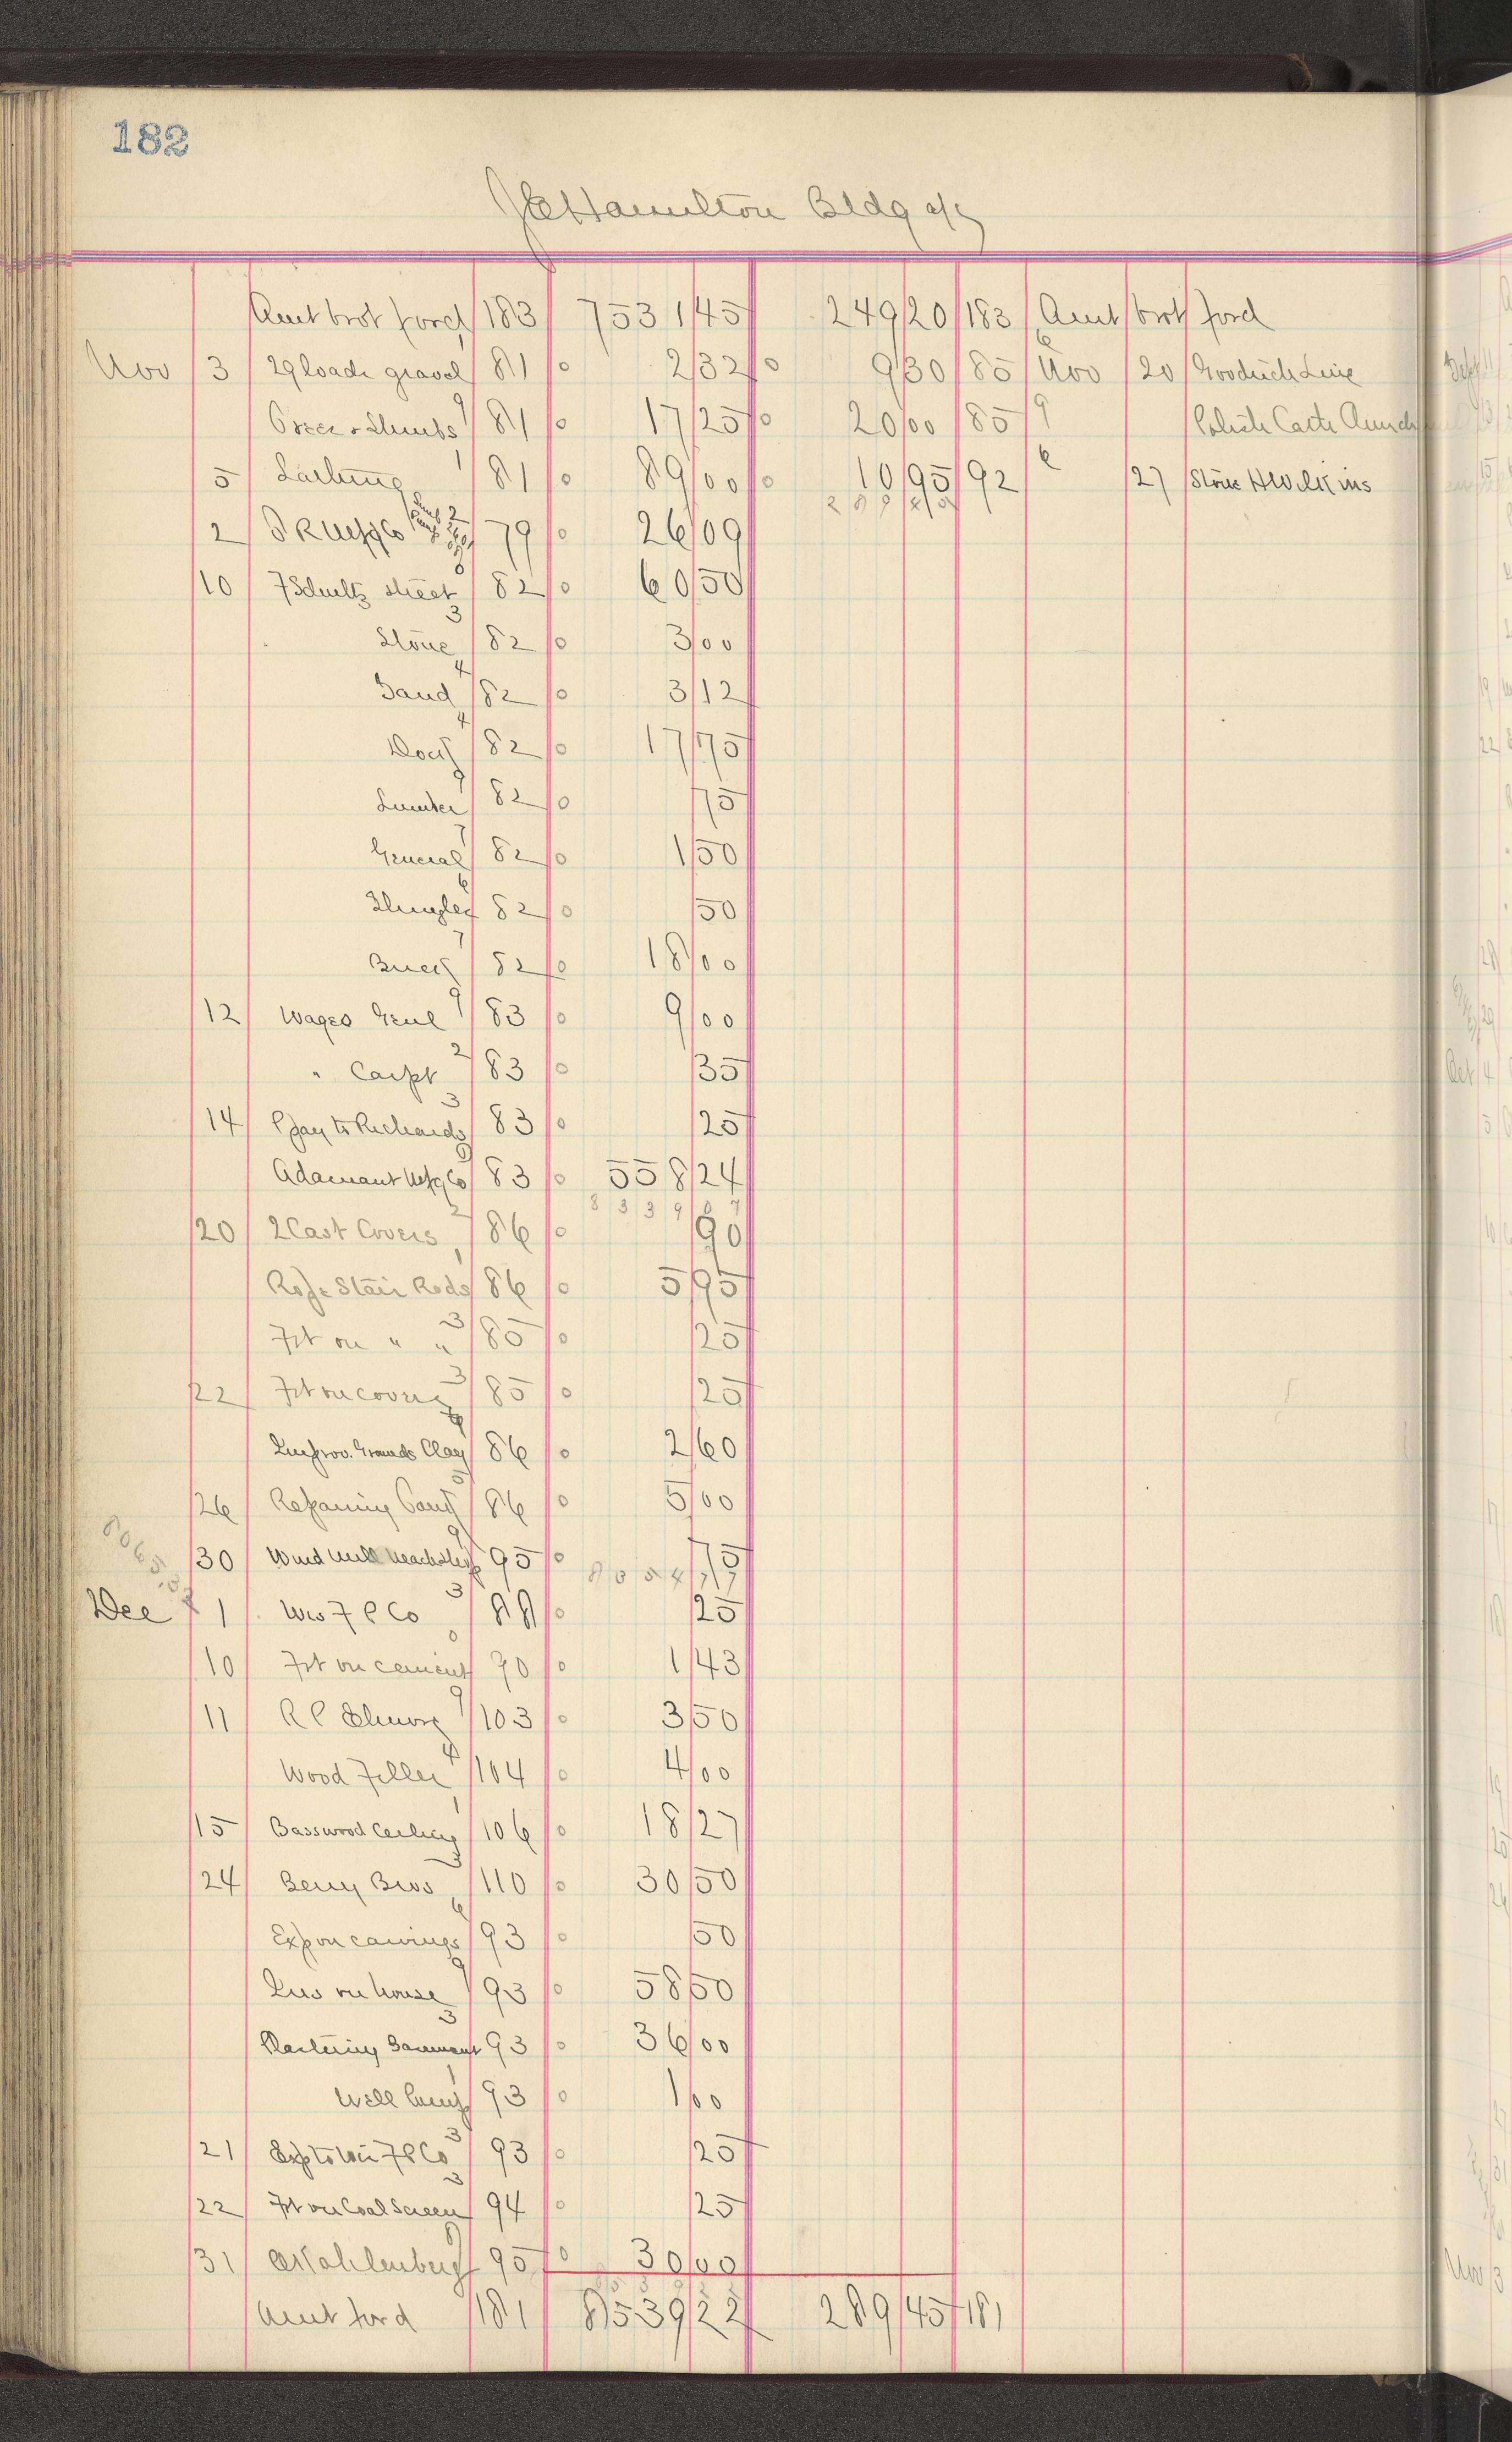 182
JEHamilton Bldg a/c
Amt brot ford 183 7531/45 249/20 183 Amt brot ford
Nov 3 29 loads gravel 81 2/32 9/30 85 Nov 20 Goodrich Line
81 17/25 20/00 85
5 Lathing 81 89/00 10/95 92 27 Stone
289/45
2 79 26/09
10 7 Schultz street 82 60/50
Stone 82 3/00
Sand 82 3/12
82 17/75
Lumber 82 75
General 82 1/50
Shingles 82 50
82 18/00
12 Wages Genl 83 9/00
" Carpt 83 35
14 to Richards 83 25
Adamant Mfg Co 83 558/24
8339/67
20 2 Cast Covers 86 90
Stair Rods 86 5/95
Frt on " " 85 25
22 Frt on covers 85 25
Improv. Grounds Clay 86 2/60
26 Repairing 86 5/00
30 Wind mill 95 75
Dec 1 Wis F P Co 25
10 Frt on cement 90 1/43
11 103 3/50
Wood Filler 104 4/00
15 Basswood Ceiling 106 18/27
24 Berry Bros 110 30/50
Exp on 93 50
Ins on house 93 58/50
Plastering Basement 93 36/00
Well 93 1/00
21 Exp to Wis F P Co 93 25
22 Frt on Coal Screen 94 25
31 Kahlenberg 95 30/00
Amt ford 181 8539/22 289/45 181